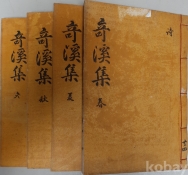 奇溪集 春
奇溪集 夏
奇溪集 秋
奇溪集 冬
kobay